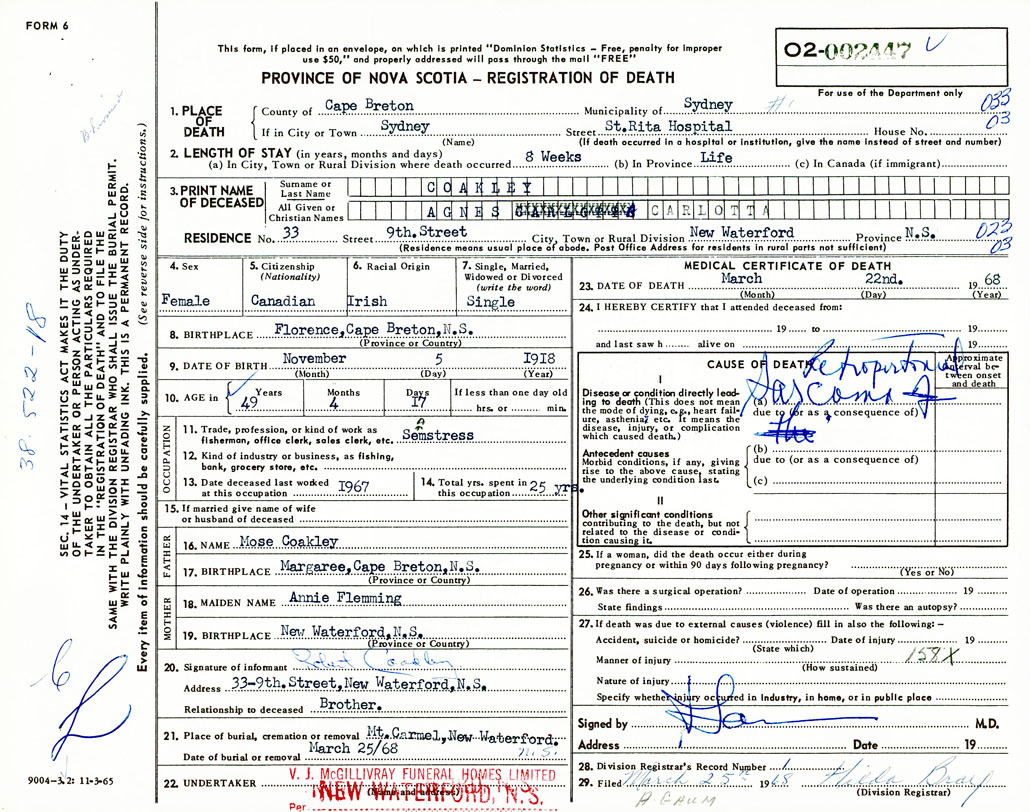 FORM 6
This form, if placed in an envelope, on which is printed "Dominion Statistics – Free, penalty for improper
use $50," and properly addressed will pass through the mail "FREE"
PROVINCE OF NOVA SCOTIA – REGISTRATION OF DEATH
O2-002447
For use of the Department only
033
03
1. PLACE OF DEATH
County of Cape Breton Municipality of Sydney #1
If in City or Town Sydney Street St.Rita Hospital House No.
(Name) (If death occurred in a hospital or institution, give the name instead of street and number)
2. LENGTH OF STAY (in years, months and days)
(a) In City, Town or Rural Division where death occurred 8 Weeks (b) In Province Life (c) In Canada (if immigrant)
3. PRINT NAME OF DECEASED
Surname or Last Name COAKLEY
All Given or Christian Names AGNES CARLOTTA
RESIDENCE No. 33 Street 9th.Street City, Town or Rural Division New Waterford Province N.S. 023
03
(Residence means usual place of abode. Post Office Address for residents in rural parts not sufficient)
4. Sex
Female
5. Citizenship
(Nationality)
Canadian
6. Racial Origin
Irish
7. Single, Married,
Widowed or Divorced
(write the word)
Single
8. BIRTHPLACE Florence,Cape Breton,N.S.
(Province or Country)
9. DATE OF BIRTH November 5 1918
(Month) (Day) (Year)
10. AGE in Years Months Days If less than one day old
49 4 17 hrs. or min.
OCCUPATION
11. Trade, profession, or kind of work as
fisherman, office clerk, sales clerk, etc. Semstress
a
12. Kind of industry or business, as fishing,
bank, grocery store, etc.
13. Date deceased last worked
at this occupation 1967
14. Total yrs. spent in
this occupation 25 yrs.
15. If married give name of wife
or husband of deceased
FATHER
16. NAME Mose Coakley
17. BIRTHPLACE Margaree,Cape Breton,N.S.
(Province or Country)
MOTHER
18. MAIDEN NAME Annie Flemming
19. BIRTHPLACE New Waterford,N.S.
(Province or Country)
20. Signature of informant Robert Coakley
Address 33-9th.Street,New Waterford,N.S.
Relationship to deceased Brother.
21. Place of burial, cremation or removal Mt.Carmel,New Waterford.
N.S.
Date of burial or removal March 25/68
22. UNDERTAKER V. J. McGILLIVRAY FUNERAL HOMES LIMITED
(Name and address)
NEW WATERFORD, N.S.
Per
MEDICAL CERTIFICATE OF DEATH
23. DATE OF DEATH March 22nd. 19 68
(Month) (Day) (Year)
24. I HEREBY CERTIFY that I attended deceased from:
19 to 19
and last saw h alive on 19
CAUSE OF DEATH
Approximate interval between onset and death
I
Disease or condition directly leading to death (This does not mean
the mode of dying, e.g., heart failure, asthenia, etc. It means the
disease, injury, or complication
which caused death.)
(a) Retroperitoneal
Sarcoma
due to (or as a consequence of)
the
Antecedent causes
Morbid conditions, if any, giving
rise to the above cause, stating
the underlying condition last.
(b)
due to (or as a consequence of)
(c)
II
Other significant conditions
contributing to the death, but not
related to the disease or condition causing it.
25. If a woman, did the death occur either during
pregnancy or within 90 days following pregnancy?
(Yes or No)
26. Was there a surgical operation? Date of operation 19
State findings Was there an autopsy?
27. If death was due to external causes (violence) fill in also the following: –
Accident, suicide or homicide? Date of injury 19
(State which)
158X
Manner of injury
(How sustained)
Nature of injury
Specify whether injury occurred in Industry, in home, or in public place
Signed by M.D.
Address Date 19
28. Division Registrar's Record Number 1
29. Filed March 25th 1968 Hilda Bray
(Division Registrar)
A. GAUM
SEC. 14 – VITAL STATISTICS ACT MAKES IT THE DUTY
OF THE UNDERTAKER OR PERSON ACTING AS UNDERTAKER TO OBTAIN ALL THE PARTICULARS REQUIRED
IN THE "REGISTRATION OF DEATH" AND TO FILE THE
SAME WITH THE DIVISION REGISTRAR WHO SHALL ISSUE THE BURIAL PERMIT.
WRITE PLAINLY WITH UNFADING INK. THIS IS A PERMANENT RECORD.
Every item of information should be carefully supplied. (See reverse side for instructions.)
38.522-18
6
9004-3.2: 11-3-65